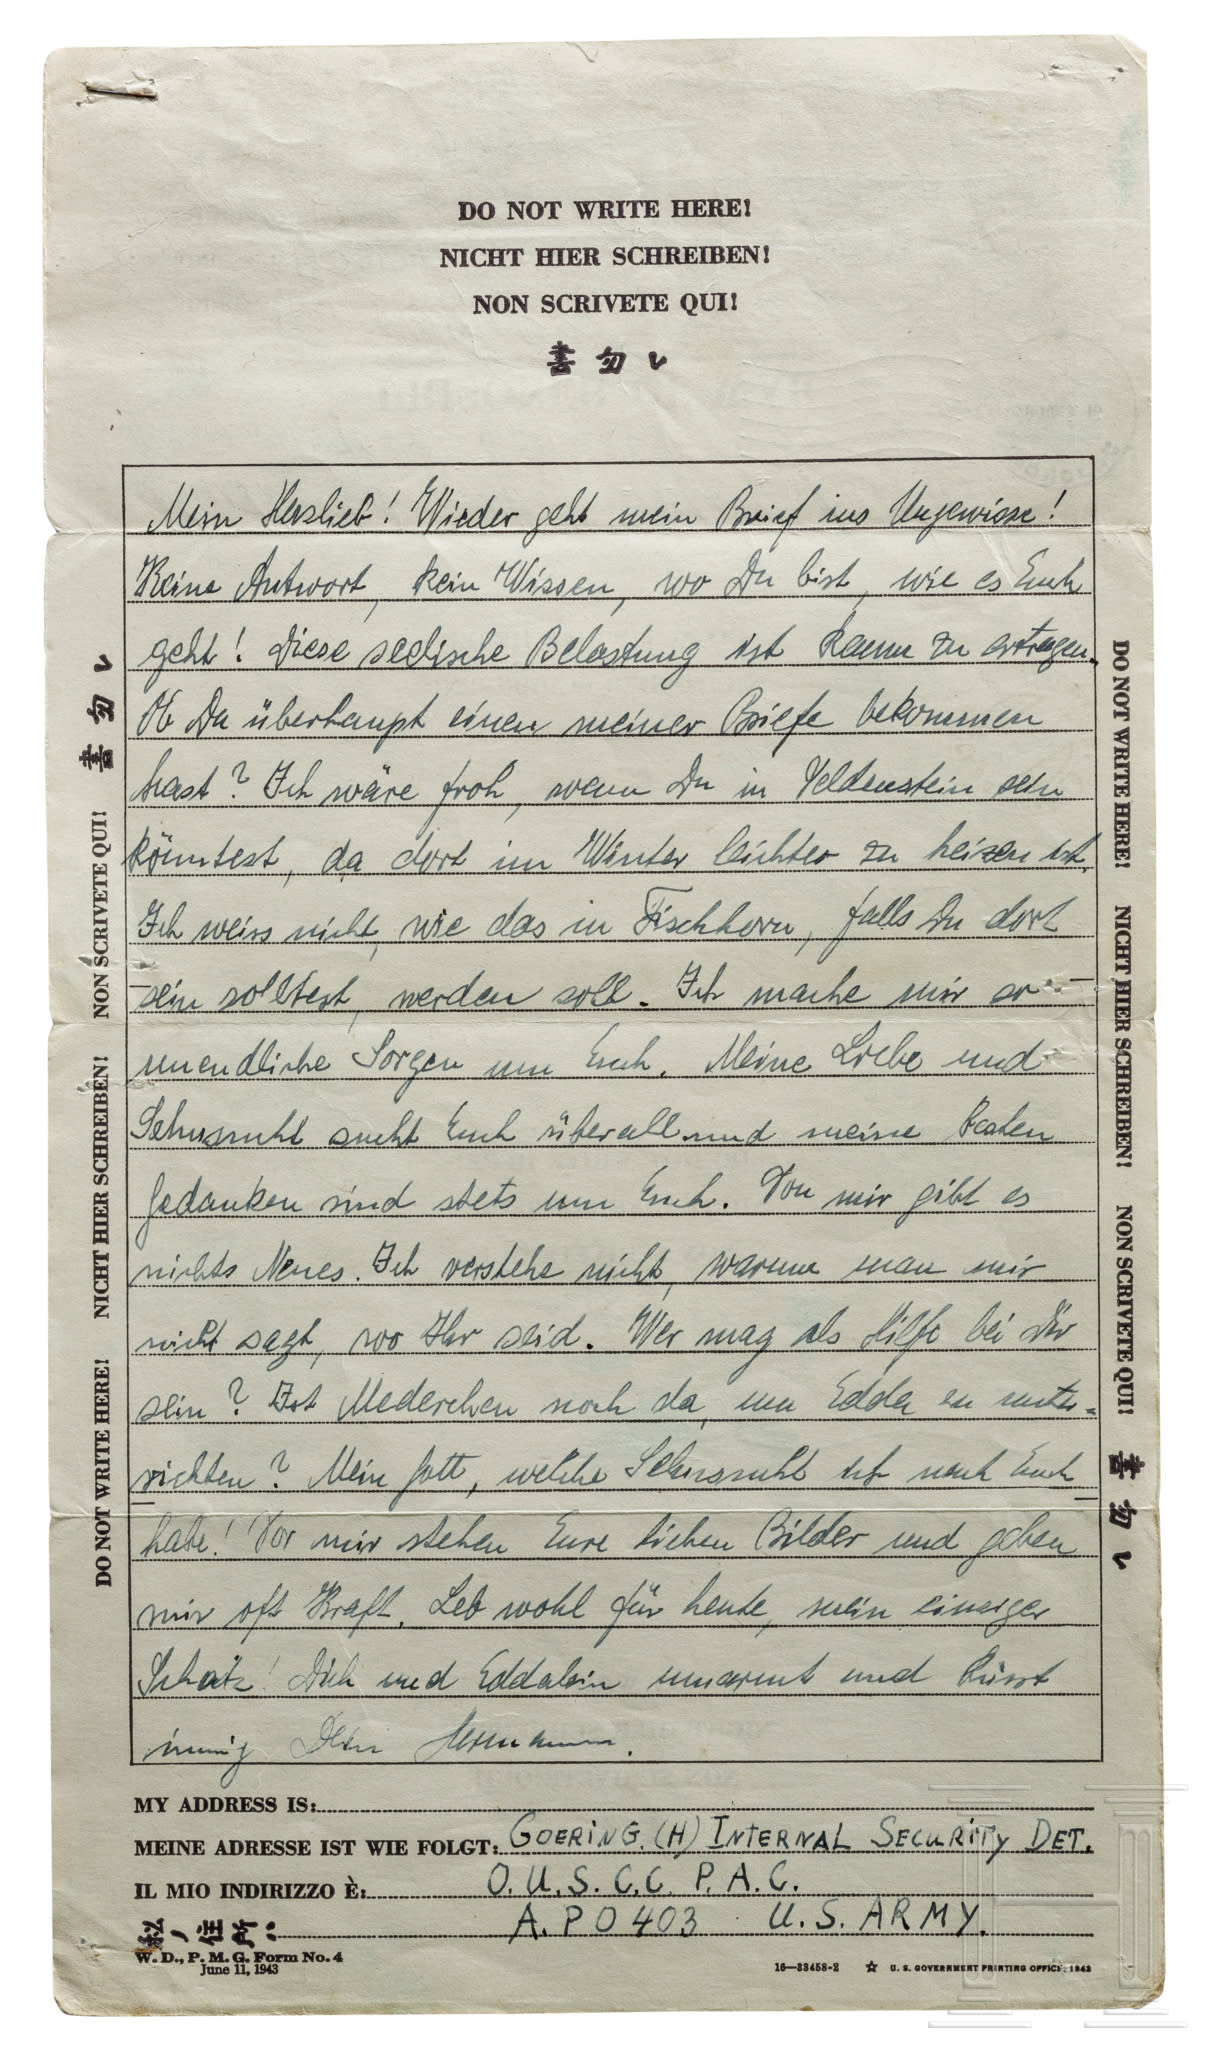 DO NOT WRITE HERE!
NICHT HIER SCHREIBEN!
NON SCRIVETE QUI!
書勿レ
Mein Herzlieb! Wieder geht mein Brief ins Ungewisse!
Keine Antwort, kein Wissen, wo Du bist, wie es Euch
geht! Diese seelische Belastung ist kaum zu ertragen.
Ob Du überhaupt einen meiner Briefe bekommen
hast? Ich wäre froh, wenn Du in Veldenstein sein
könntest, da dort im Winter leichter zu heizen ist.
Ich weiss nicht, wie das in Fischhorn, falls Du dort
sein solltest, werden soll. Ich mache mir so
unendliche Sorgen um Euch. Meine Liebe und
Sehnsucht sucht Euch überall und meine
Gedanken sind stets um Euch. Von mir gibt es
nichts Neues. Ich verstehe nicht, warum man mir
nicht sagt, wo Ihr seid. Wer mag als Hilfe bei Dir
sein? Ist noch da, um Edda zu unter-
richten? Mein Gott, welche Sehnsucht ich nach Euch
habe! Vor mir stehen Eure lieben Bilder und geben
mir oft Kraft. Leb wohl für heute, mein einziger
Schatz! Dich und Eddalein umarmt und küsst
innig Dein Hermann.
MY ADDRESS IS:
MEINE ADRESSE IST WIE FOLGT: GOERING (H) INTERNAL SECURITY DET.
IL MIO INDIRIZZO È: O.U.S.C.C. P.A.C.
私ノ住所: A.P O 403 U.S. ARMY.
W. D., P. M. G. Form No. 4
June 11, 1943
16—33458-2 ☆ U. S. GOVERNMENT PRINTING OFFICE: 1943
DO NOT WRITE HERE! NICHT HIER SCHREIBEN! NON SCRIVETE QUI! 書勿レ
DO NOT WRITE HERE! NICHT HIER SCHREIBEN! NON SCRIVETE QUI! 書勿レ